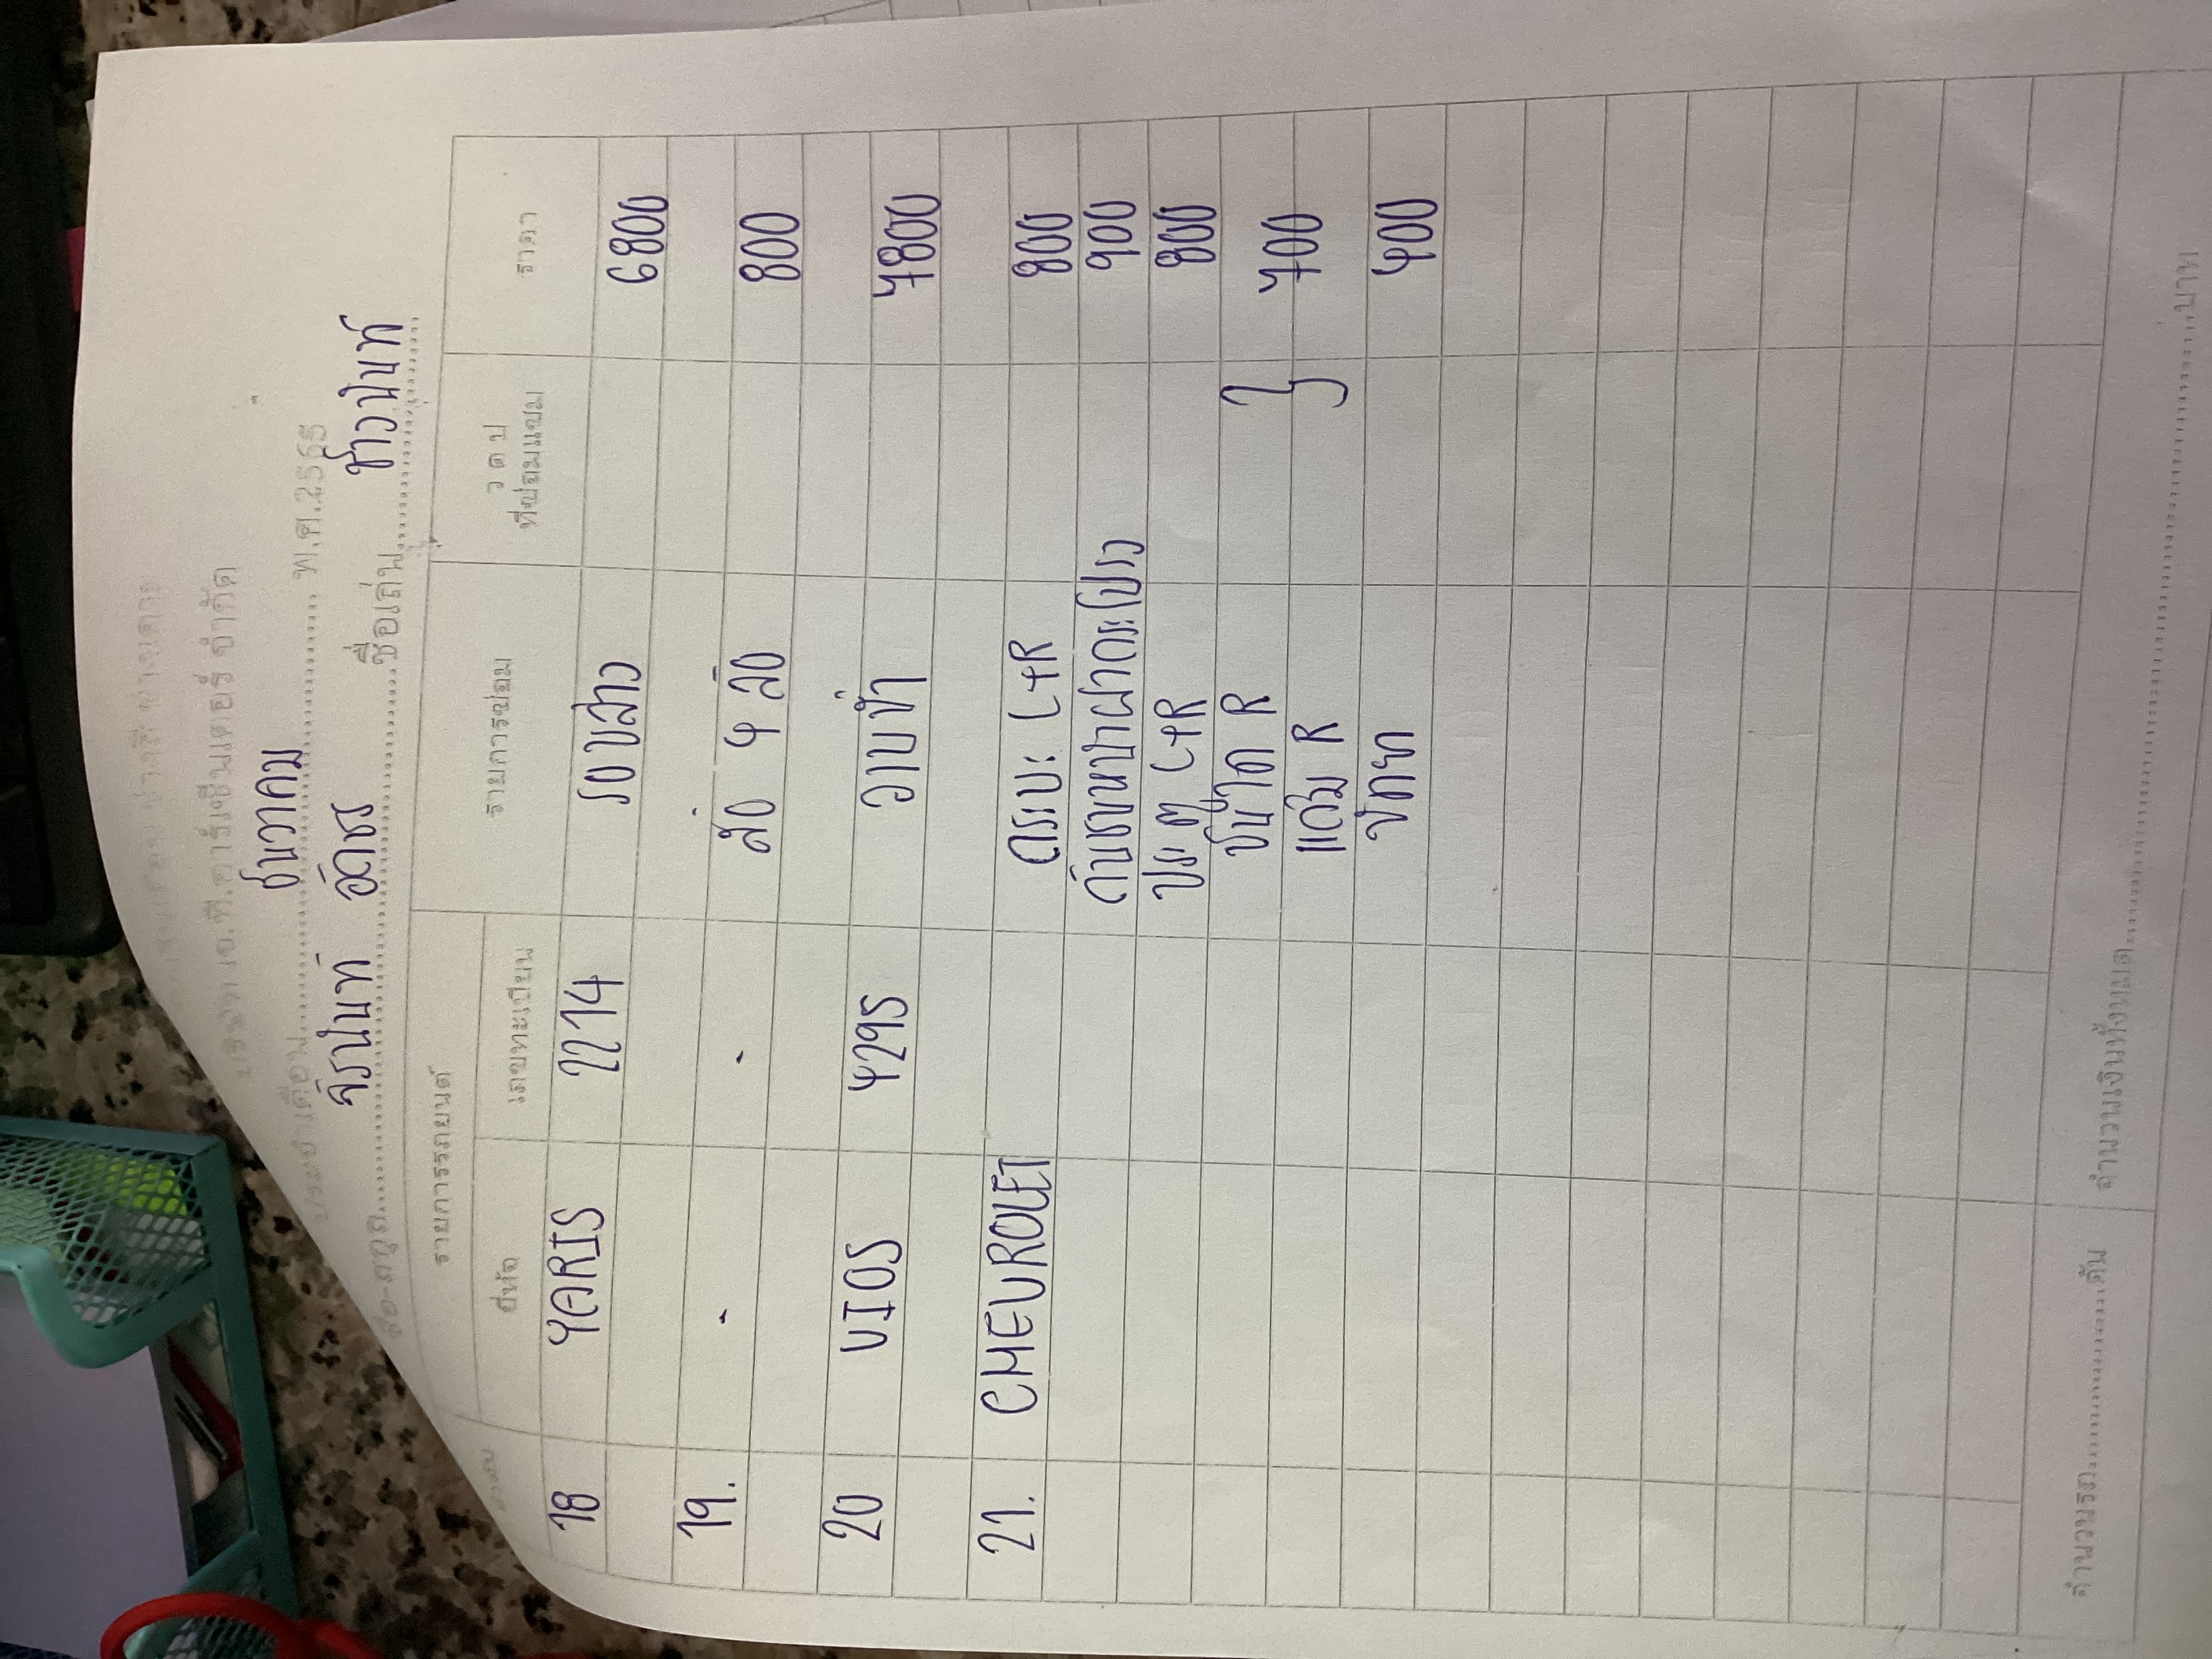 บริษัท เอ.ที.คาร์เซ็นเตอร์ จำกัด
ประจำเดือน ธันวาคม พ.ศ.25
ชื่อ-สกุล จิรนันท์ ชื่อเล่น
รายการรถยนต์ รายการซ่อม ว ด ป ที่ซ่อมแซม ราคา
ลำดับ ยี่ห้อ เลขทะเบียน
18 YARIS 2214 รอบสาว 6800
19. - - ล้อ 4 ล้อ 800
20 VIOS 4295 7800
21. CHEVROLET กระบะ L+R 800
กันชนหน้าฝากระโปรง 900
ประตู L+R 800
บันได R
แก้ม R 700
400
จำนวนรถ คัน จำนวนเงินทั้งหมด บาท